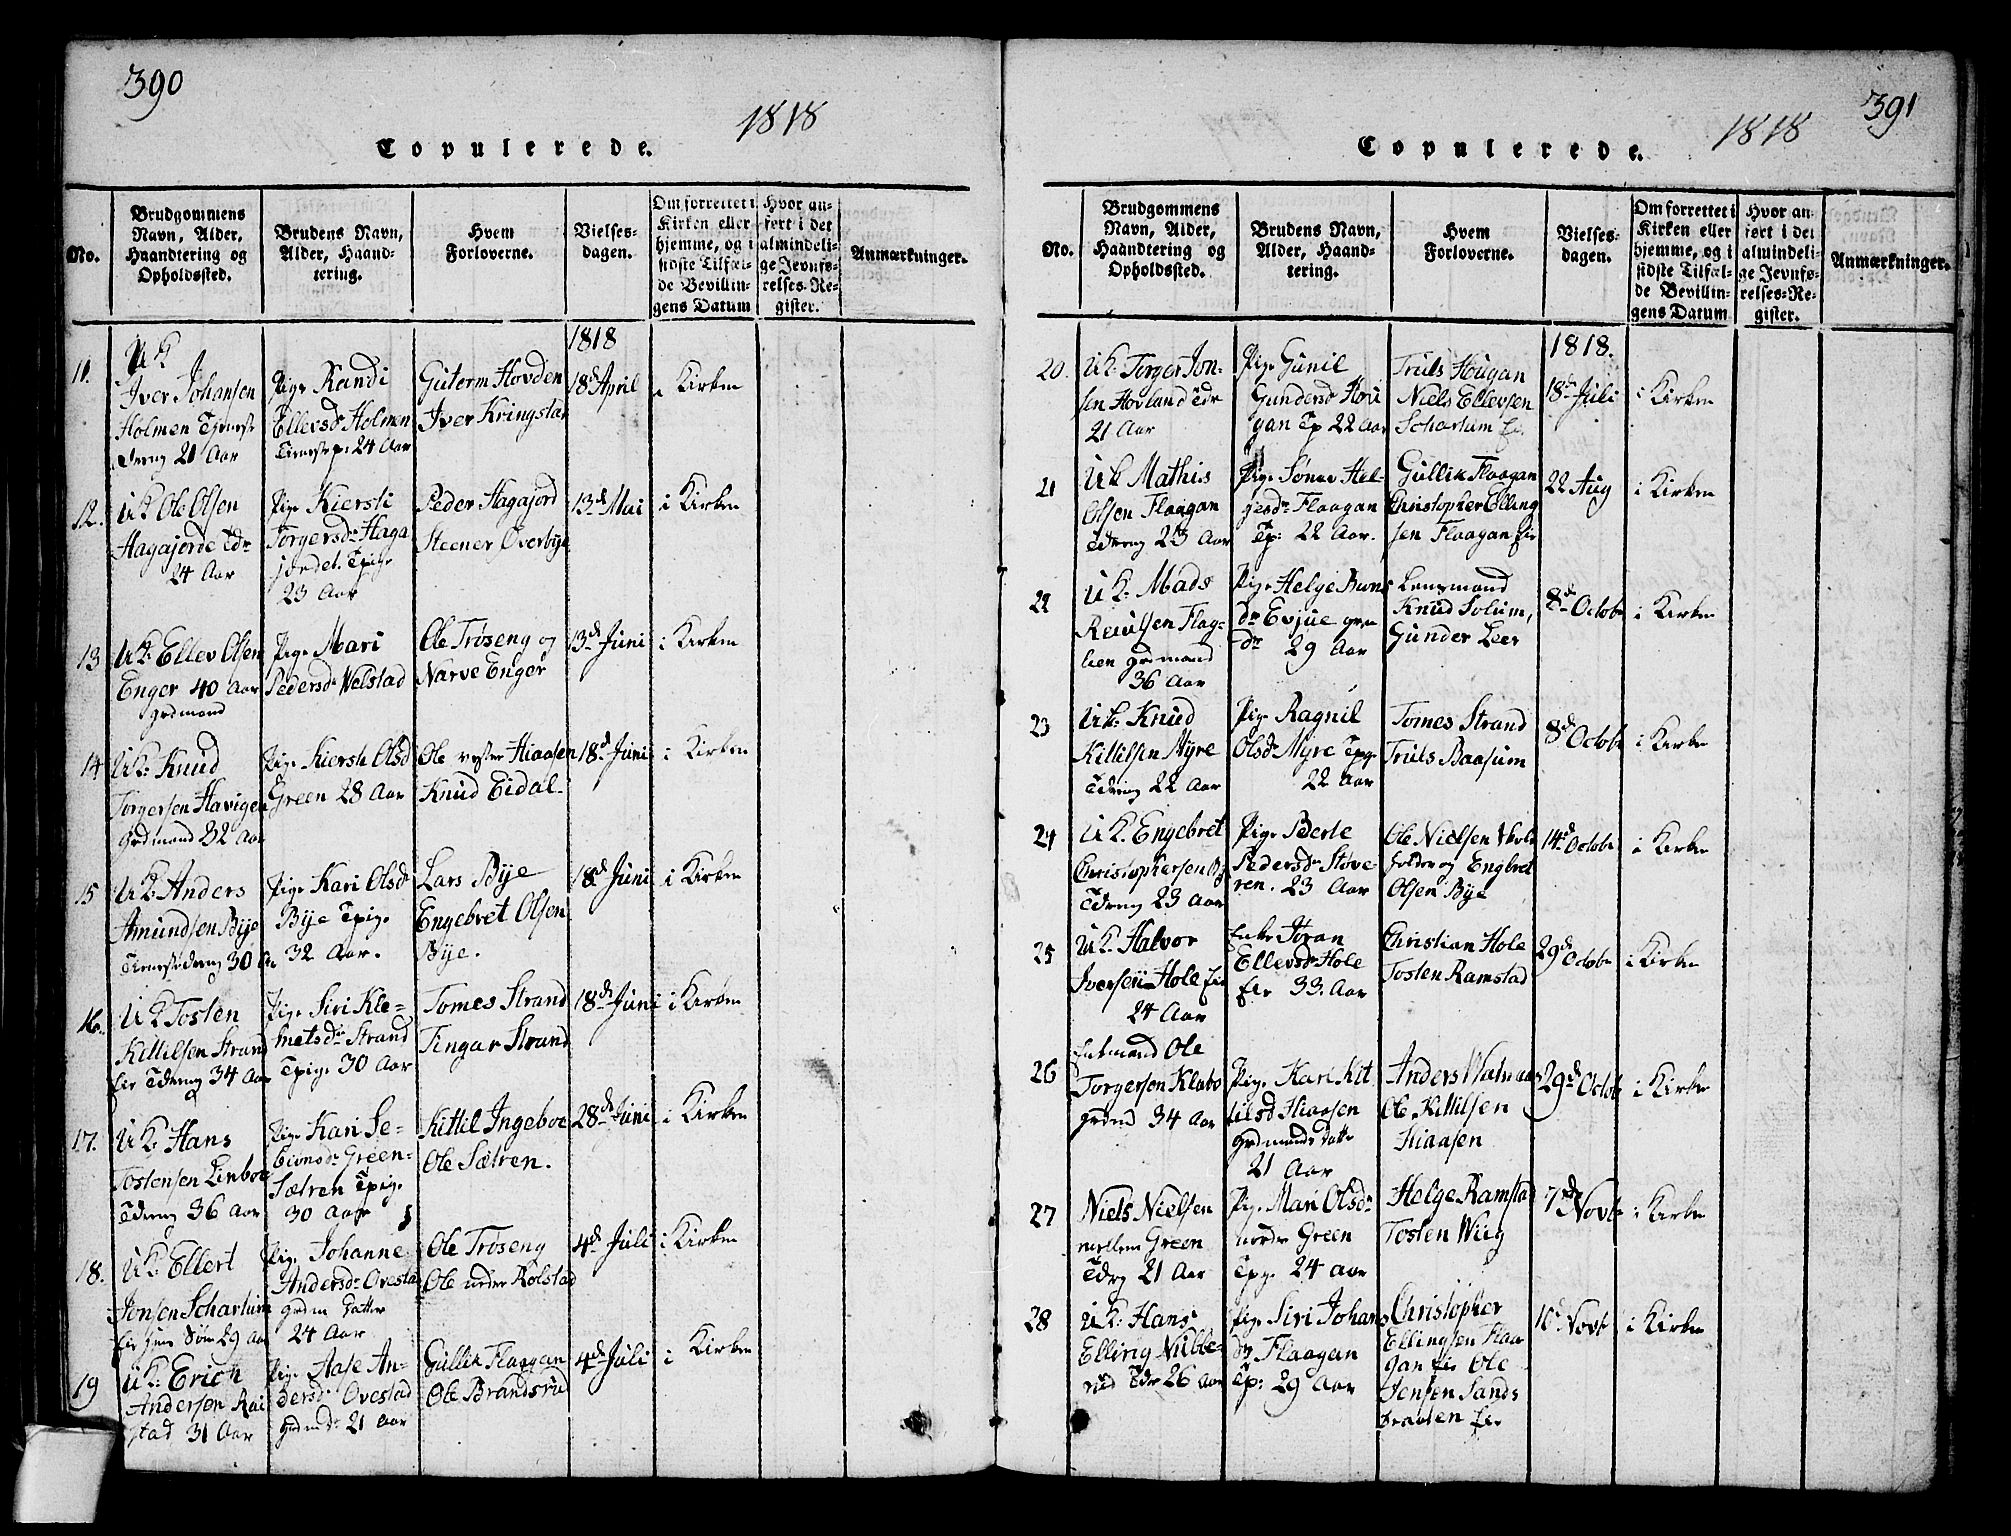 390
1818
Copulerede.
No.
Brudgommens Navn, Alder, Haandtering og Opholdssted.
Brudens Navn, Alder, Haandtering.
Hvem Forloverne.
Vielses-dagen.
Om forrettet i Kirken eller hjemme, og i sidste Tilfælde Bevillingens Datum
Hvor anført i det almindelige Jevnførelses-Register.
Anmærkninger.
1818
11.
UK
Iver Johansen
Holmen
21 Aar
Pige Randi
Ellevsd Holmen
24 Aar
Guterm Hovden
Iver Kringstad
18d April
i Kirken
12.
UK Ole Olsen
Hagajorde Tdr
24 Aar
Pige Kiersti
Torgersdr Haga
jordet. Tpige
23 Aar
Peder Hagajord
Steener Overbye
13d Mai
i Kirken
13
UK: Ellev Olsen
Enger 40 Aar
grdmand
Pige Mari
Pedersdr Welstad
Ole Trøseng og
Narve Enger
13d Juni
i Kirken
14
UK: Knud
Torgersen Havigen
Grdmand 32 Aar
Pige Kiersti Olsd
Green 28 Aar
Ole vestre Hiaasen
Knud Eidal
18d Juni
i Kirken
15
UK: Anders
Amundsen Bye
30 Aar
Pige Kari Olsdr
Bye Tpige
32 Aar.
Lars Bye
Engebret Olsen
Bye.
18d Juni
i Kirken
16.
UK Tosten
Kittilsen Strand
Eier Tdreng 34 Aar
Pige Siri Kle-
metsdr Strand
Tpige 30 Aar
Tomes Strand
Tingar Strand
18d Juni
i Kirken
17.
UK: Hans
Tostensen Linboe
Tdreng 36 Aar
Pige Kari Se-
bionsdr Green-
Sætren Tpige
30 Aar
Kittil Ingeboe
Ole Sætren.
28d Juni
i Kirken
18.
UK: Ellert
Jonsen Schartum
Søn 29 Aar
Pige Johanne
Andersdr Ovestad
Grdm Datter
24 Aar
Ole Trøseng
Ole nedre Rolstad
4d Juli
i Kirken
19
UK: Erich
Andersen Rai
stad 31 Aar
Pige Aase An-
dersdr Ovestad
grdmdr 21 Aar
Gullik Flaagan
Ole Brandsrud
4d Juli
i Kirken
391
1818
Copulerede.
No.
Brudgommens Navn, Alder, Haandtering og Opholdssted.
Brudens Navn, Alder, Haandtering.
Hvem Forloverne.
Vielses-dagen.
Om forrettet i Kirken eller hjemme, og i sidste Tilfælde Bevillingens Datum
Hvor anført i det almindelige Jevnførelses-Register.
Anmærkninger.
1818.
20.
UK: Torger Jon-
sen Hovland Tdr
21 Aar
Pige Gunil
Gundersd Hou
gan Tp 22 Aar
Truls Hougan
Niels Ellevsen
Schartum Eier
18d Juli
i Kirken
21
UK Mathis
Olsen Flaagan
Tdreng 23 Aar
Pige Hel-
gesdr Flaagan
Tp: 22 Aar.
Gullik Flaagan
Christopher Elling
sen Flaagan Eier
22 Aug
i Kirken
22
UK: Mads
Flag-
lien grdmand
36 Aar
Pige Helge
dr Evjue grm
dr 29 Aar
Lensmand
Knud Solum,
Gunder Leer
8d Octobr
i Kirken
23
UK: Knud
Kittilsen Myre
Tdreng 22 Aar
Pige Ragnil
Olsdr Myre Tpige
22 Aar
Tomes Strand
Truls Baasum
8d Octobr
i Kirken
24
UK. Engebret
Christophersen
Tdreng 23 Aar
Pige Berte
Pedersdr Støve-
ren. 23 Aar
Ole Nielsen
og Engbret
Olsen Bye
14d Octobr
i Kirken
25
UK: Halvor
Iversen Hole Eier
24 Aar
Enke Jøran
Ellevsdr Hole
Eier 33. Aar
Christian Hole
Tosten Ramstad
29d Octobr
i Kirken
26
Enkmand Ole
Torgersen Klabo
Grdmd 34 Aar
Pige Kari Kit
tilsd Hiaasen
Grdmands Datter
21 Aar
Anders
Ole Kittilsen
Hiaasen
29d Octobr
i Kirken
27
Niels Nielsen
mellem Green
Tdrg 21 Aar
Pige Mari Olsdr
nordre Green
Tpige 24 Aar
Helge Ramstad
Tosten Wiig
7d Novbr
i Kirken
28
UK: Hans
Elling Nubbe-
rud Tdr 26 Aar
Pige Siri Johans
dr Flaagan
Tp: 29 Aar
Christopher
Ellingsen Flaa
gan Eier Ole
Jensen Sands
braaten Eier
10d Novbr
i Kirken